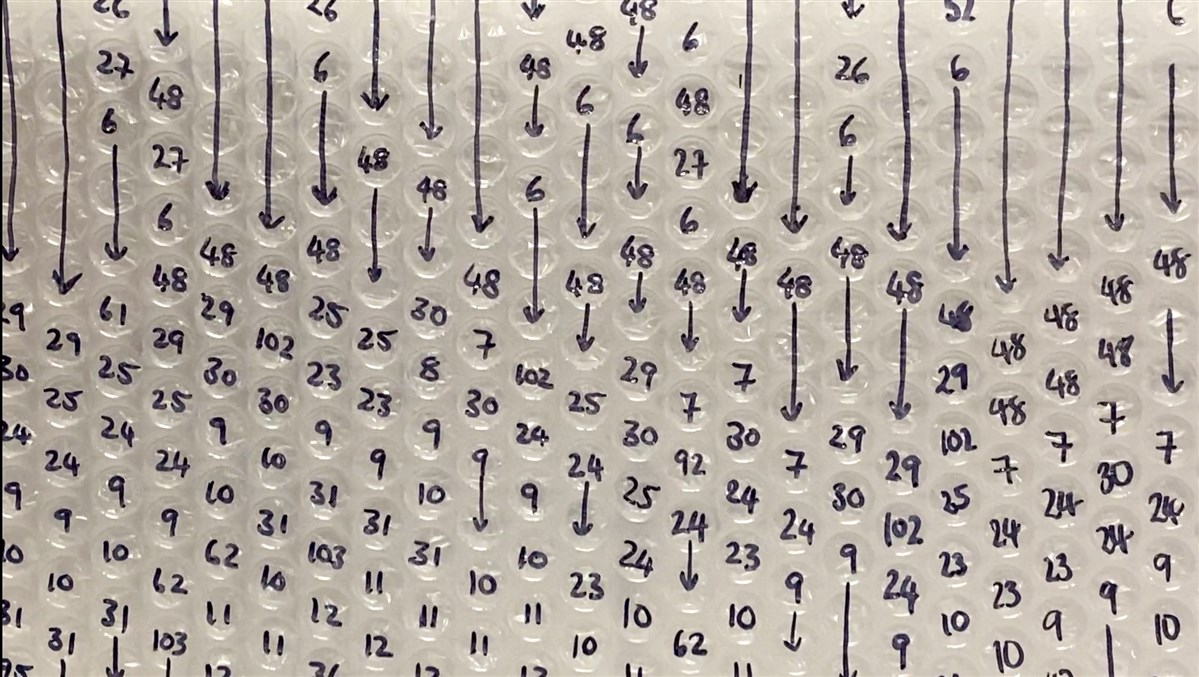 26 26 48 52 6
48 6
27 6 48 26 6
48 6 48
6 6 6
27 48 27
48 6
6 6
48 48 48 48 48 48
48 48 48 48 48 48 48 48
29 61 29 25 30 48 48
29 29 102 25 7 48 48
30 25 30 23 8 102 29 7 29 48
25 25 30 23 30 25 7 48 7
24 24 9 9 9 24 30 30 29 102 7 7
24 24 10 9 9 24 92 7 29 7 30
9 9 10 31 10 9 25 24 30 25 24 24
9 9 31 31 24 24 102 24 24
10 10 62 103 31 10 24 23 9 23 23 9
10 62 10 11 10 23 9 24 23 9
31 31 11 12 11 11 10 10 10 9 10
31 103 11 12 11 10 62 9 10